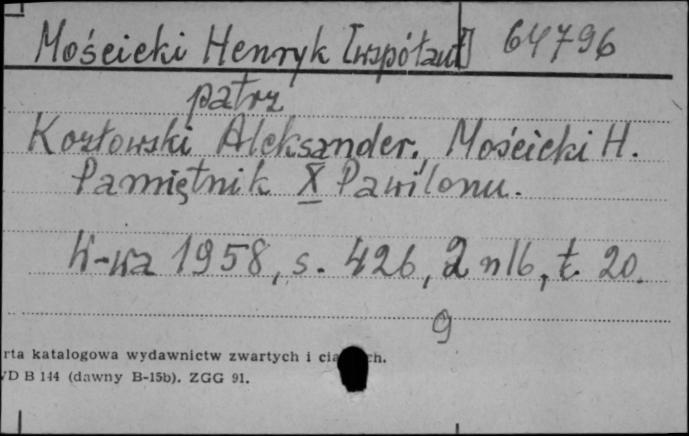 Mościcki Henryk [współaut] 64796
patrz
Kozłowski Aleksander, Mościcki H.
Pamiętnik X Pawilonu.
W-wa 1958, s. 426, 2 nlb, t. 20.
9
rta katalogowa wydawnictw zwartych i ch.
D B 144 (dawny B-15b). ZGG 91.